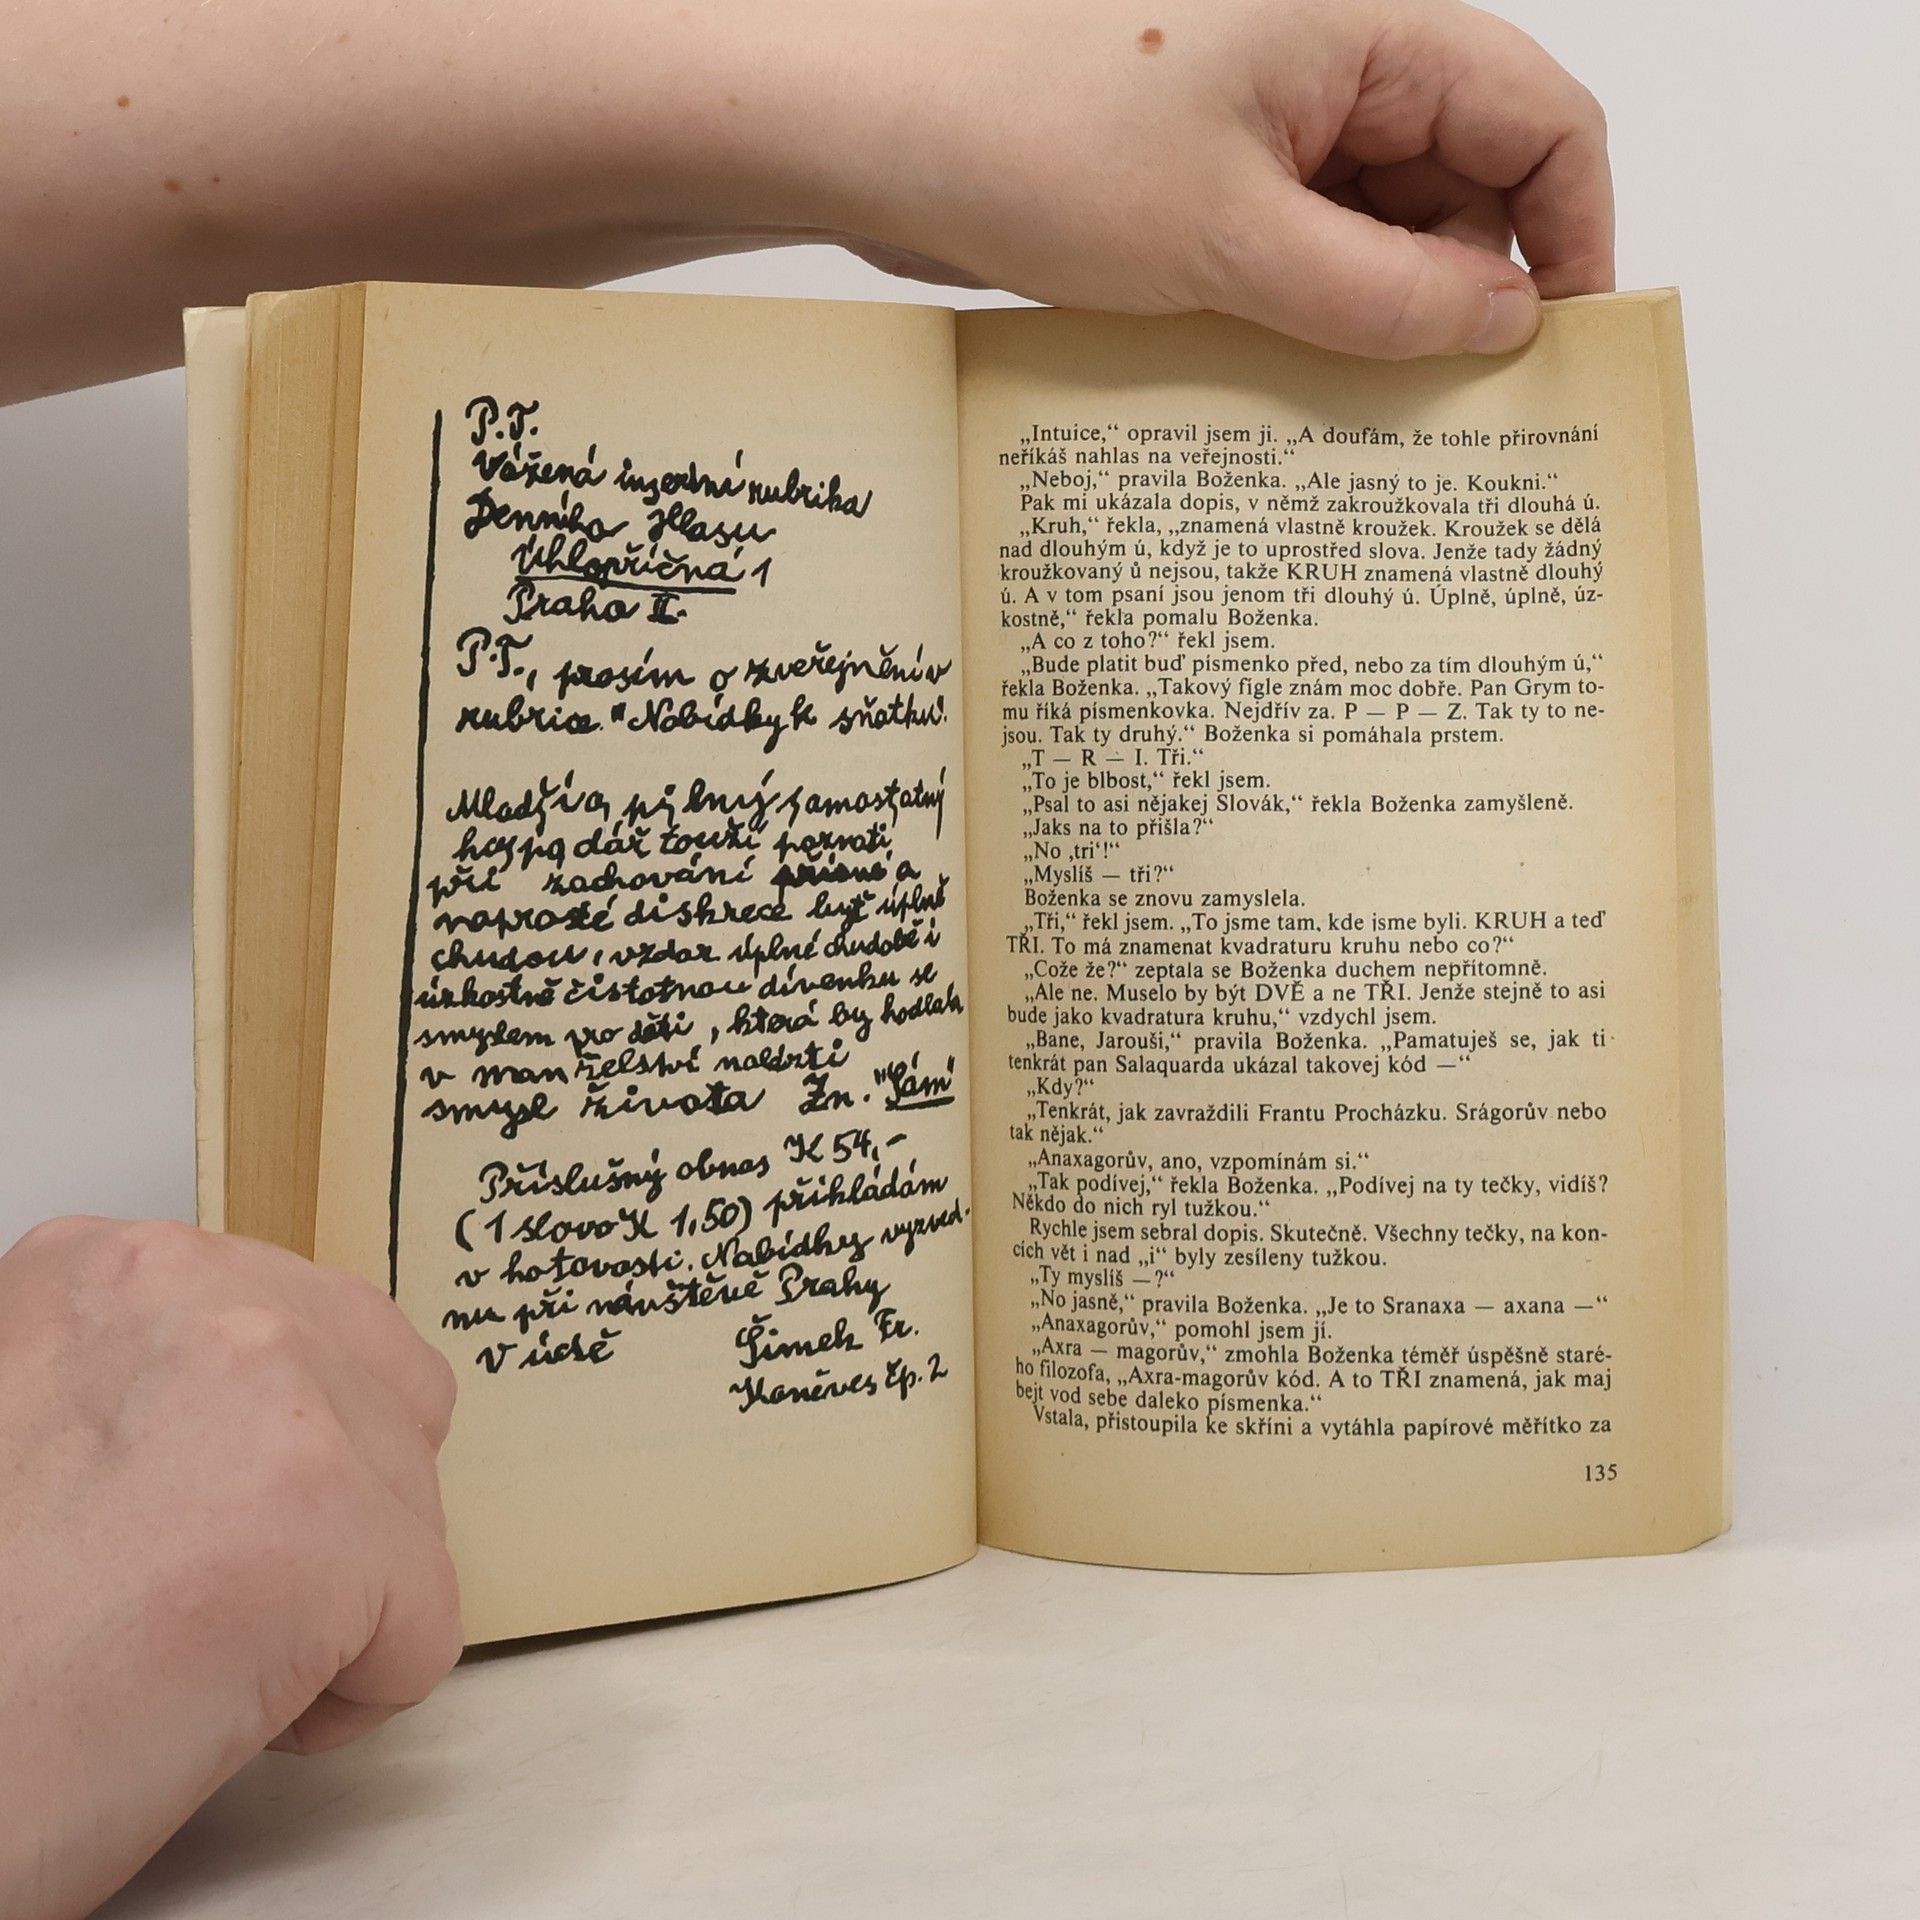 P.T.
Vážená inzertní rubrika
Denního Hlasu
Úhlopříčná 1
Praha II.
P.T., prosím o zveřejnění v
rubrice "Nabídky k sňatku".
Mladší a pilný samostatný
hospodář touží poznati
při zachování přísné a
naprosté diskrece byť úplně
chudou, vzdor úplné chudobě i
úzkostně čistotnou dívenku se
smyslem pro děti, která by hodlala
v manželství nalézti
smysl života Zn. "Sám"
Příslušný obnos K 54,-
(1 slovo K 1,50) přikládám
v hotovosti. Nabídky vyzved-
nu při návštěvě Prahy
V úctě Šimek Fr.
Koněves čp. 2
„Intuice,“ opravil jsem ji. „A doufám, že tohle přirovnání
neříkáš nahlas na veřejnosti.“
„Neboj,“ pravila Boženka. „Ale jasný to je. Koukni.“
Pak mi ukázala dopis, v němž zakroužkovala tři dlouhá ú.
„Kruh,“ řekla, „znamená vlastně kroužek. Kroužek se dělá
nad dlouhým ú, když je to uprostřed slova. Jenže tady žádný
kroužkovaný ů nejsou, takže KRUH znamená vlastně dlouhý
ú. A v tom psaní jsou jenom tři dlouhý ú. Úplně, úplně, úz-
kostně,“ řekla pomalu Boženka.
„A co z toho?“ řekl jsem.
„Bude platit buď písmenko před, nebo za tím dlouhým ú,“
řekla Boženka. „Takový fígle znám moc dobře. Pan Grym to-
mu říká písmenkovka. Nejdřív za. P — P — Z. Tak ty to ne-
jsou. Tak ty druhý.“ Boženka si pomáhala prstem.
„T — R — I. Tři.“
„To je blbost,“ řekl jsem.
„Psal to asi nějakej Slovák,“ řekla Boženka zamyšleně.
„Jaks na to přišla?“
„No ‚tri‘!“
„Myslíš — tři?“
Boženka se znovu zamyslela.
„Tři,“ řekl jsem. „To jsme tam, kde jsme byli. KRUH a teď
TŘI. To má znamenat kvadraturu kruhu nebo co?“
„Cože že?“ zeptala se Boženka duchem nepřítomně.
„Ale ne. Muselo by být DVĚ a ne TŘI. Jenže stejně to asi
bude jako kvadratura kruhu,“ vzdychl jsem.
„Bane, Jarouši,“ pravila Boženka. „Pamatuješ se, jak ti
tenkrát pan Salaquarda ukázal takovej kód —“
„Kdy?“
„Tenkrát, jak zavraždili Frantu Procházku. Srágorův nebo
tak nějak.“
„Anaxagorův, ano, vzpomínám si.“
„Tak podívej,“ řekla Boženka. „Podívej na ty tečky, vidíš?
Někdo do nich ryl tužkou.“
Rychle jsem sebral dopis. Skutečně. Všechny tečky, na kon-
cích vět i nad „i“ byly zesíleny tužkou.
„Ty myslíš —?“
„No jasně,“ pravila Boženka. „Je to Sranaxa — axana —“
„Anaxagorův,“ pomohl jsem jí.
„Axra — magorův,“ zmohla Boženka téměř úspěšně staré-
ho filozofa, „Axra-magorův kód. A to TŘI znamená, jak maj
bejt vod sebe daleko písmenka.“
Vstala, přistoupila ke skříni a vytáhla papírové měřítko za
135